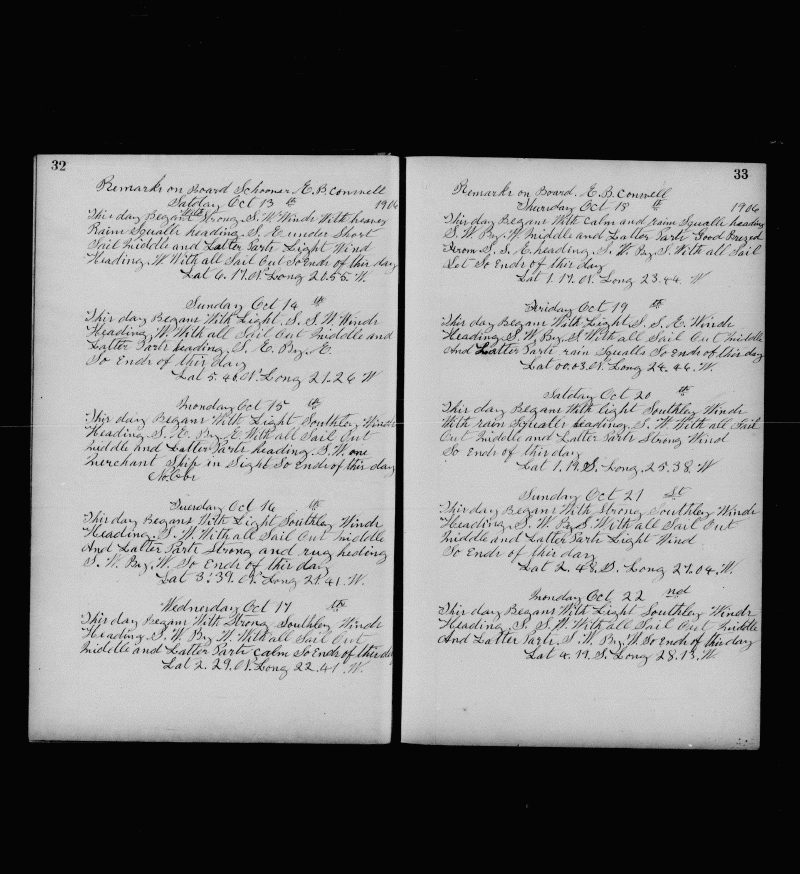 32
Remarks on Board Schooner E. B. Conwell
Satday Oct 13 th 1906
This day Began with Strong. S. W Winds With heavey
Rain Squalls heading. S. E under Short
Sail Middle and Latter Parts Light Wind
Heading. W With all Sail Out So Ends of this day
Lat 6. 17. N. Long 20. 55. W.
Sunday Oct 14 th
This day Begans With Light. S. S. W. Winds
Heading. W. With all Sail Out Middle and
Latter Parts heading. S. E. By. E
So Ends of this day
Lat 5. 46. N. Long 21. 26 W
Monday Oct 15 th
This day Begans With Light Southley Winds
Heading. S. E. By. E With all Sail Out
Middle and Latter Parts heading. S. W. one
Merchant Ship in Sight So Ends of this day
No. Obs
Tuesday Oct 16 th
This day Begans With Light Southley Winds
Heading. S. W. With all Sail Out Middle
And Latter Parts Strong and rug heding
S. W. By. W. So Ends of this day
Lat 3. 39. N. Long 21. 41. W.
Wednesday Oct 17 th
This day Begans With Strong Southley Winds
Heading. S. W. By W. With all Sail Out
Middle and Latter Parts Calm So Ends of this day
Lat 2. 29. N. Long 22. 41. W.
33
Remarks on Board. E. B. Conwell
Thursday Oct 18 th 1906
This day Begans With Calm and rain Squalls heading
S. W. By. W Middle and Latter Parts Good Brezed
From S. S. E. heading. S. W. By. S. With all Sail
Set So Ends of this day
Lat 1. 17. N. Long 23. 44. W
Friday Oct 19 th
This day Began With Light S. S. E. Winds
Heading S. W. By. S With all Sail Out Middle
And Latter Parts rain Squalls So Ends of this day
Lat 00. 03. N. Long 24. 46. W.
Satday Oct 20 th
This day Begans With light Southley Winds
With rain Squalls heading. S. W. With all Sail
Out Middle and Latter Parts Strong Wind
So Ends of this day
Lat 1. 19. S. Long. 25. 38. W
Sunday Oct 21 St
This day Begans With Strong Southley Winds
Heading. S. W. By S. With all Sail Out
Middle and Latter Parts Light Wind
So Ends of this day
Lat 2. 48. S. Long 27. 04. W.
Monday Oct 22 nd
This day Begans With Light Southley Winds
Heading. S. S. W. With all Sail Out Middle
And Latter Parts. S. W. By. W. So Ends of this day
Lat 4. 19. S. Long 28. 13. W.